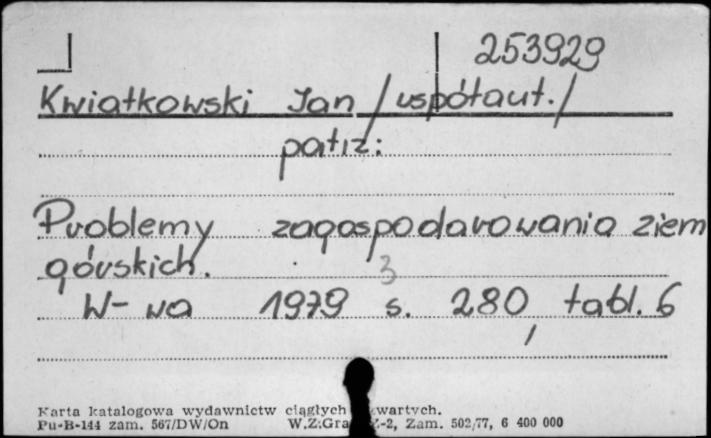 253929
Kwiatkowski Jan /współaut./
patrz:
Problemy zagospodarowania ziem
górskich. 3
W-wa 1979 s. 280, tabl. 6
Karta katalogowa wydawnictw ciągłych wartych.
Pu-B-144 zam. 567/DW/On W.Z.Gra Z-2, Zam. 502/77, 6 400 000